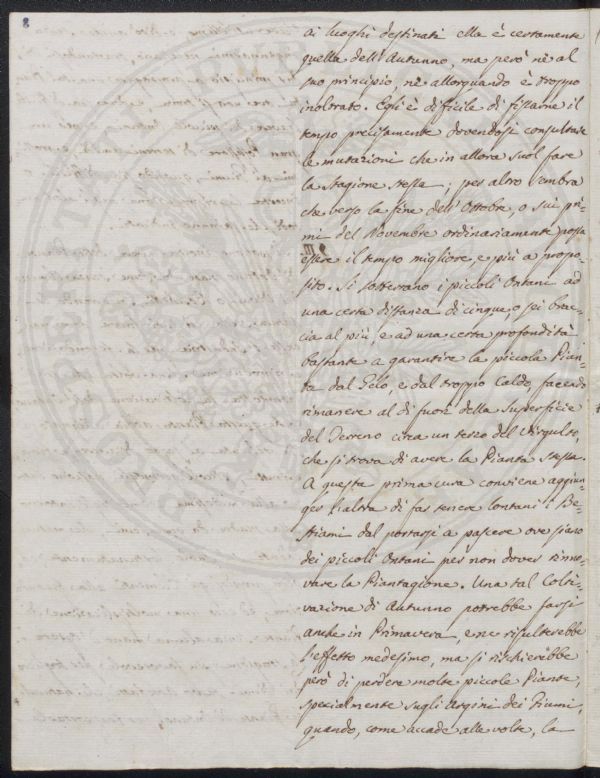 8
ai luoghi destinati ella è certamente
quella dell' Autunno, ma però nè al
suo principio, nè allorquando è troppo
inoltrato. Egli è dificile di fissarne il
tempo precisamente dovendosi consultare
le mutazioni che in allora suol fare
la stagione stessa; per altro sembra
che verso la fine dell' Ottobre, o sui pri-
mi del Novembre ordinariamente possa
essere il tempo migliore, e più a propo-
sito. Si sotterrano i piccoli Ontani ad
una certa distanza di cinque, o sei brac-
cia al più, e ad una certa profondità
bastante a garantire la piccola Pian-
ta dal Gelo, e dal troppo Caldo, facendo
rimanere al di fuori della Superficie
del Terreno circa un terzo del Virgulto,
che si trova di avere la Pianta stessa.
A questa prima cura conviene aggiun-
ger l'altra di far tenere lontani i Be-
stiami dal portarsi a pascere ove siano
dei piccoli Ontani per non dover rinno-
vare la Piantagione. Una tal Colti-
vazione di Autunno potrebbe farsi
anche in Primavera, e ne risulterebbe
l'effetto medesimo, ma si rischierebbe
però di perdere molte piccole Piante,
specialmente sugli Argini dei Fiumi,
quando, come accade alle volte, la